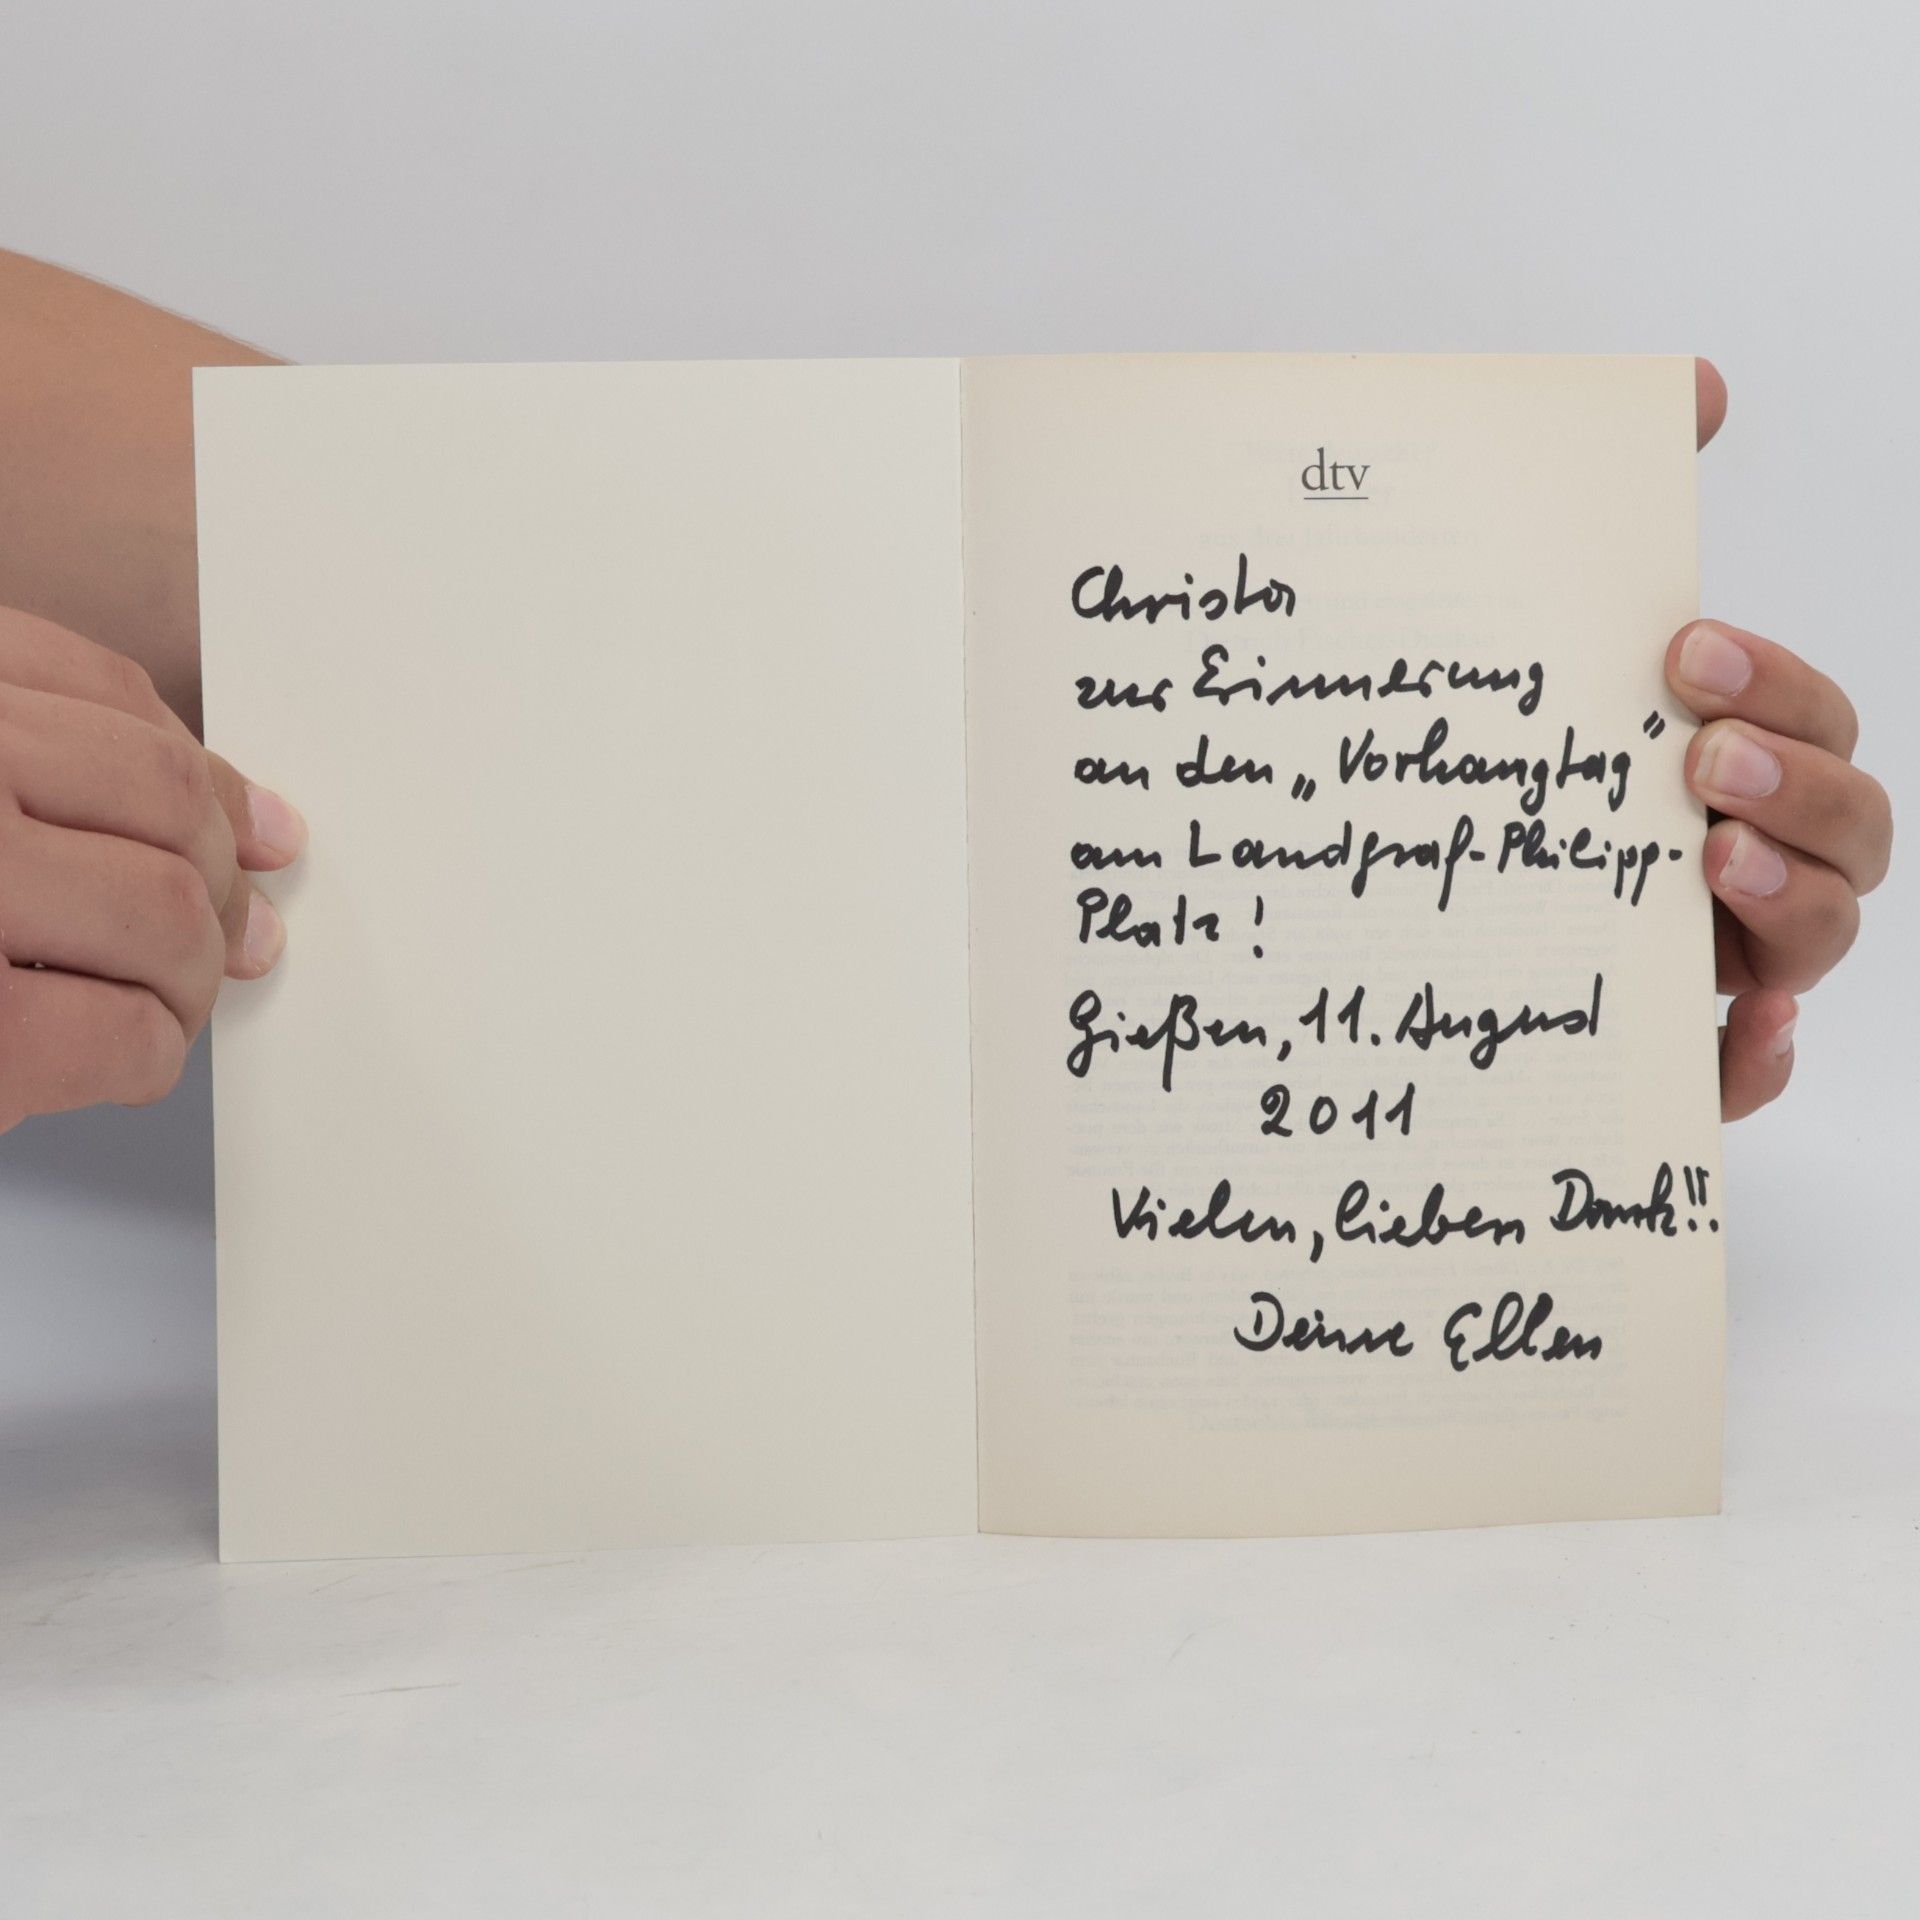 dtv
Christa
zur Erinnerung
an den „Vorhangtag“
am Landgraf-Philipp-
Platz!
Gießen, 11. August
2011
Vielen, lieben Dank!!
Deine Ellen